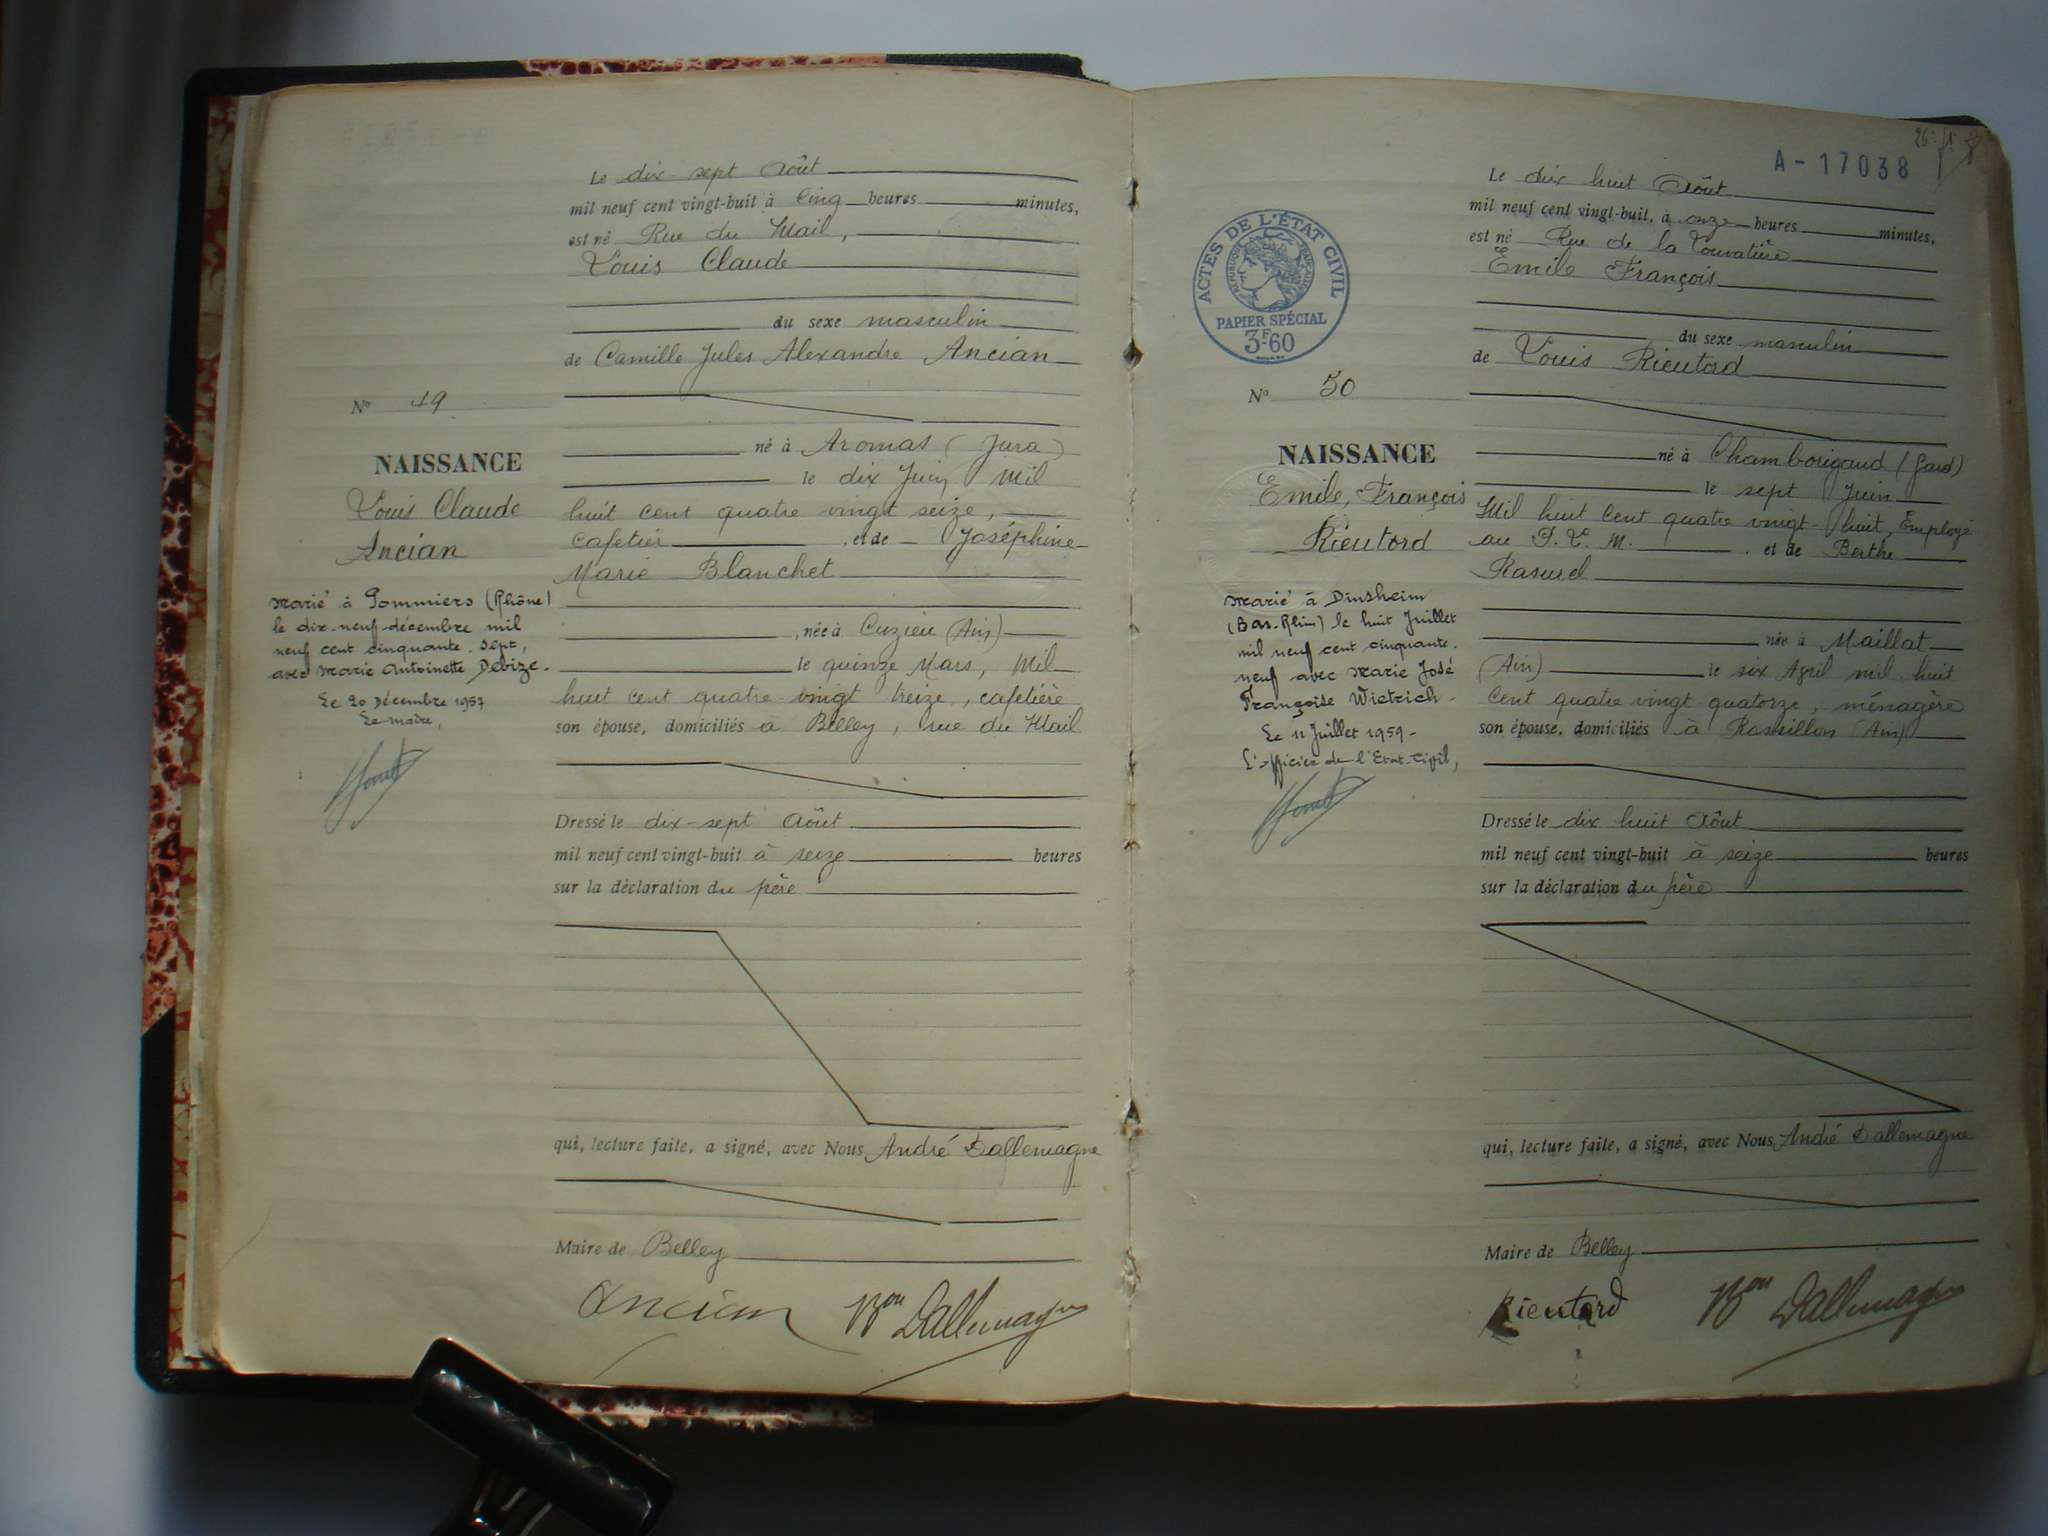 Le dix-sept Août
mil neuf cent vingt-huit à Cinq heures minutes,
est né Rue du Mail,
Louis Claude
du sexe masculin
de Camille Jules Alexandre Ancian
N° 49
né à Aromas (Jura)
NAISSANCE
le dix Juin Mil
Louis Claude
huit cent quatre vingt seize,
Ancian
cafetier, et de Joséphine
Marie Blanchet
Marié à Pommiers (Rhône)
le dix-neuf décembre mil
neuf cent cinquante-sept,
avec Marie Antoinette Debize.
Le 20 Décembre 1957
Le maire,
, née à Cuzieu (Ain)
le quinze Mars, Mil
huit cent quatre-vingt treize, cafetière
son épouse, domiciliés à Belley, rue du Mail
Dressé le dix-sept Août
mil neuf cent vingt-huit à seize heures
sur la déclaration du père
qui, lecture faite, a signé, avec Nous André Dallemagne
Maire de Belley
Ancian Bon Dallemagne
26e f.
A-17038
Le dix huit Août
mil neuf cent vingt-huit, à onze heures minutes,
est né Rue de la
Emile François
ACTES DE L'ÉTAT CIVIL
RÉPUBLIQUE FRANÇAISE
PAPIER SPÉCIAL
3F60
du sexe masculin
de Louis Rieutord
N° 50
NAISSANCE
né à Chamborigaud (Gard)
Emile, François
Rieutord
le sept Juin
Mil huit cent quatre vingt-huit, Employé
au P. L. M. , et de Berthe
Rasurel
Marié à Dinsheim
(Bas-Rhin) le huit Juillet
mil neuf cent cinquante-
neuf avec Marie José
Françoise Wietrich.
Le 11 Juillet 1959-
L'officier de l'Etat-Civil,
née à Maillat
(Ain) le six Avril mil huit
cent quatre vingt quatorze, ménagère
son épouse, domiciliés à Rossillon (Ain)
Dressé le dix huit Août
mil neuf cent vingt-huit à seize heures
sur la déclaration du père
qui, lecture faite, a signé, avec Nous, André Dallemagne
Maire de Belley
Rieutord Bon Dallemagne